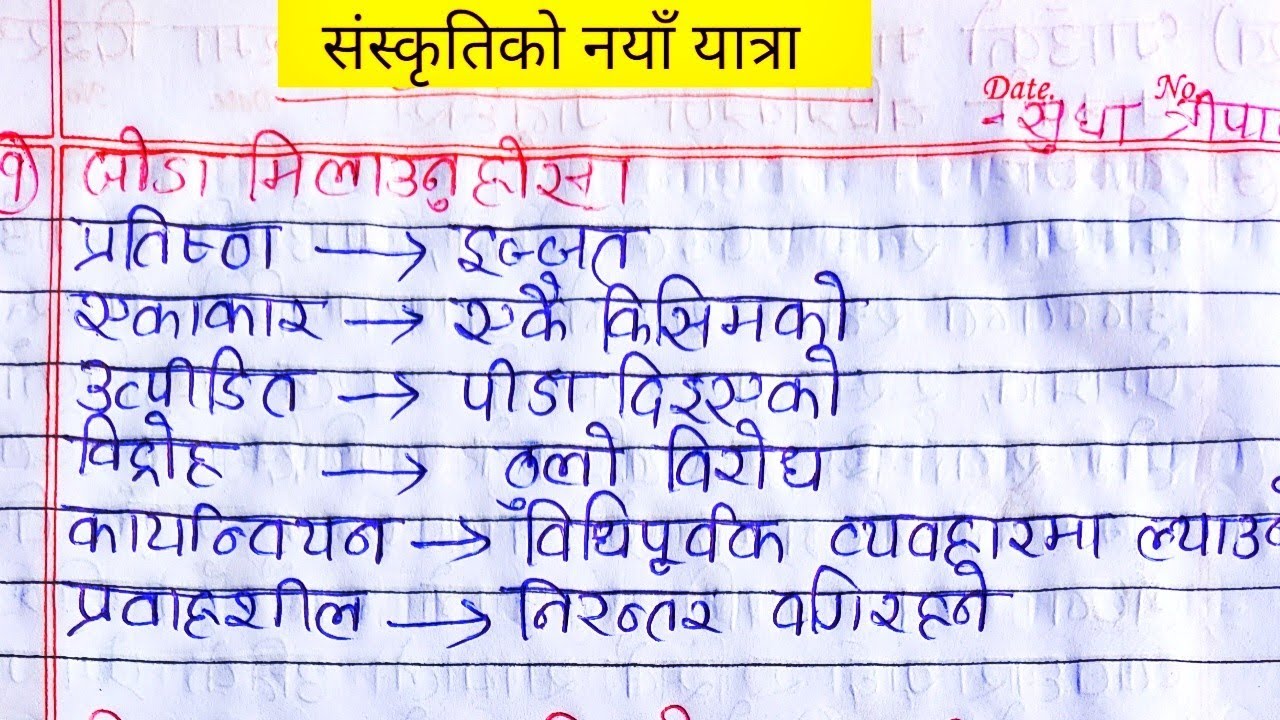 संस्कृतिको नयाँ यात्रा
Date. No.
- सुधा त्रीपा
१) जोडा मिलाउनुहोस।
प्रतिष्ठा → इज्जत
एकाकार → एकै किसिमको
उत्पीडित → पीडा दिइएको
विद्रोह → ठुलो विरोध
कार्यान्वियन → विधिपूर्वक व्यवहारमा ल्याउ
प्रवाहशील → निरन्तर वगिरहने